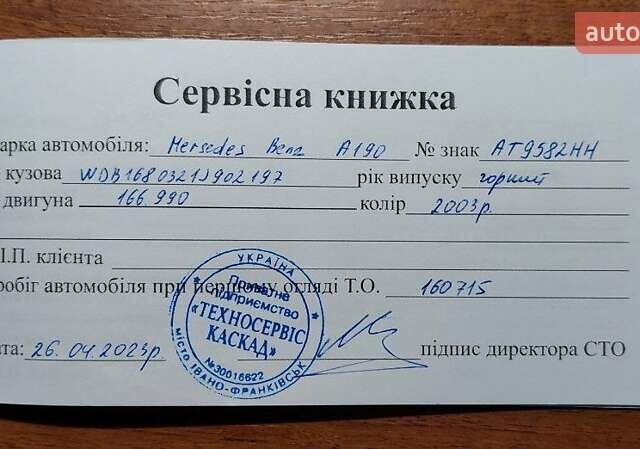 auto
Сервісна книжка
арка автомобіля: Mersedes Benz A190 № знак АТ9582НН
кузова WDB1680321J902197 рік випуску горний
двигуна 166.990 колір 2003р.
І.П. клієнта
робіг автомобіля при першому огляді Т.О. 160715
ата: 26.04.2023р. підпис директора СТО
УКРАЇНА
Приватне
підприємство
«ТЕХНОСЕРВІС
КАСКАД»
№30016622
МІСТО ІВАНО-ФРАНКІВСЬК